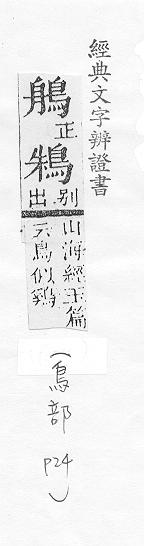 經典文字辨證書
鵃正
鴸別出
山海經玉篇
云鳥似雞
(鳥部 P24)